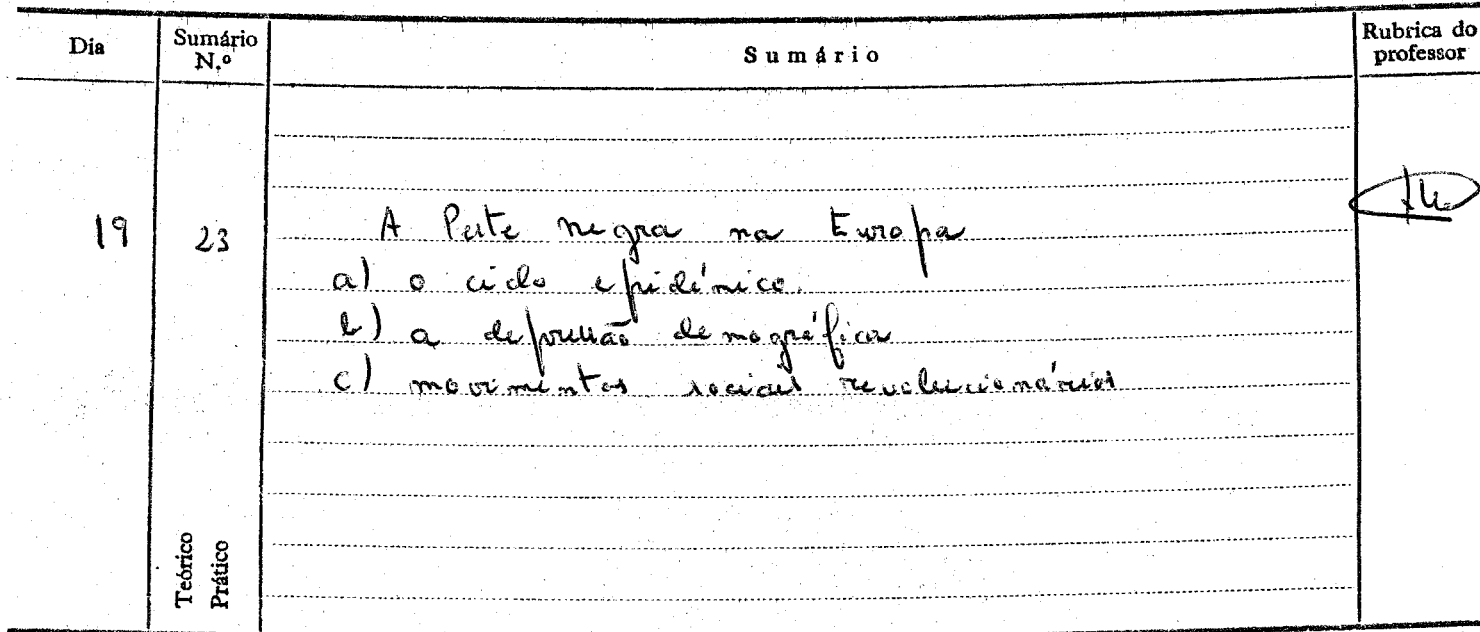 Dia
Sumário N.º
Sumário
Rubrica do professor
19
23
A Peste negra na Europa
a) o ciclo epidémico.
b) a depressão demográfica
c) movimentos sociais revolucionários
Teórico
Prático